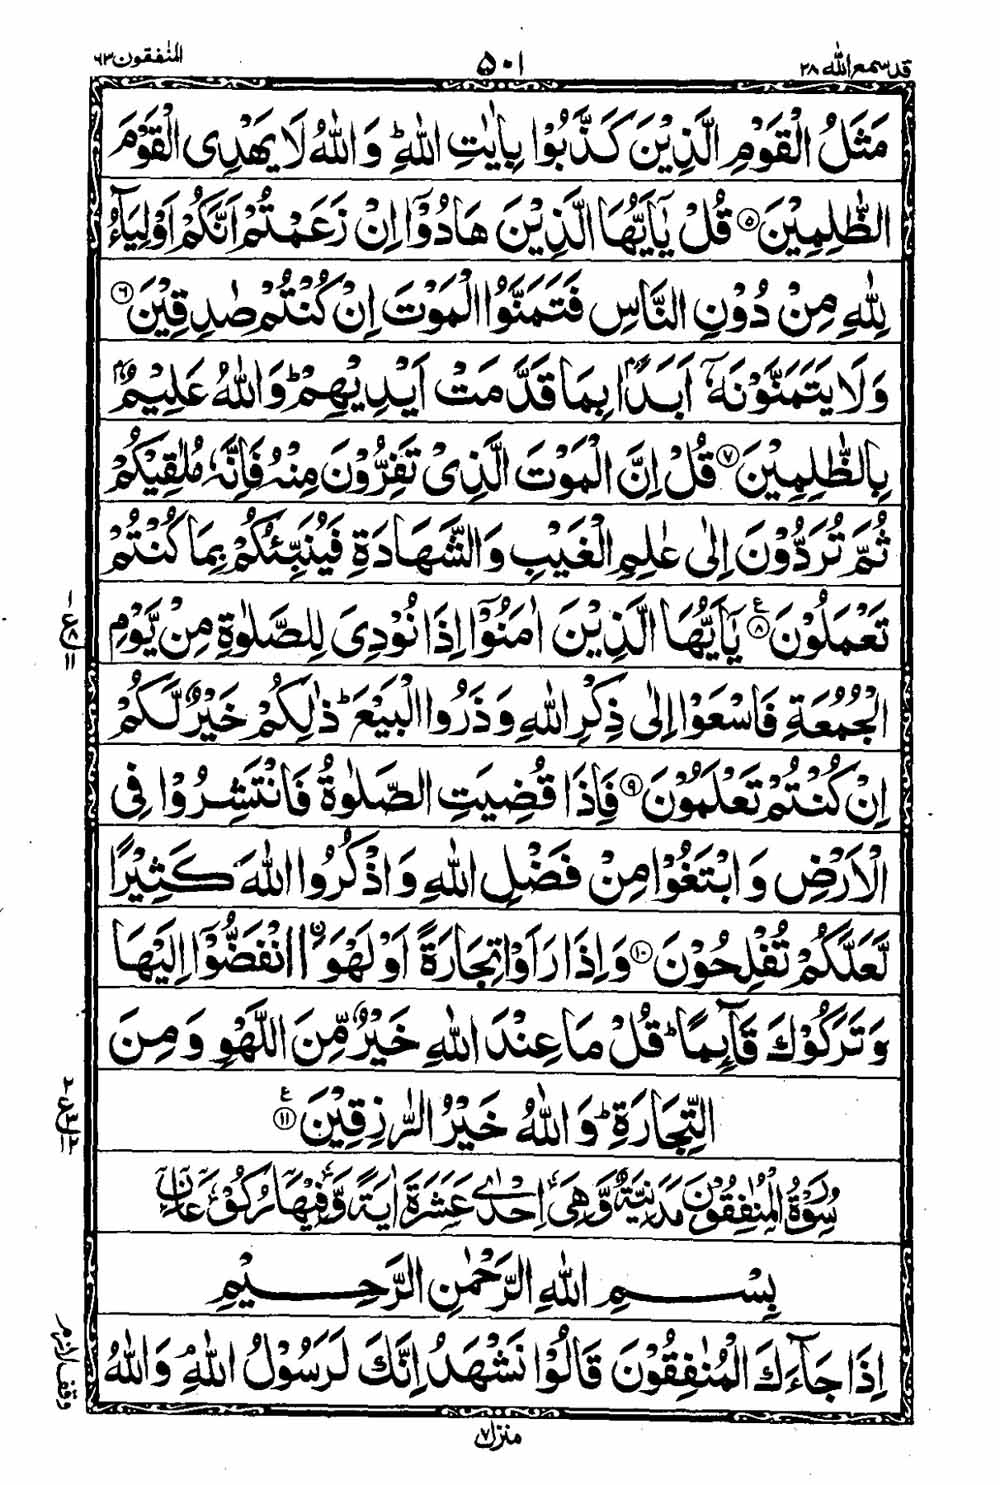 قد سمع الله ۲۸ ۵۰۱ المنٰفقون ۶۳
مَثَلُ الْقَوْمِ الَّذِيْنَ كَذَّبُوْا بِاٰيٰتِ اللّٰهِ ؕ وَاللّٰهُ لَا يَهْدِى الْقَوْمَ
الظّٰلِمِيْنَ ۵ قُلْ يٰۤاَيُّهَا الَّذِيْنَ هَادُوْۤا اِنْ زَعَمْتُمْ اَنَّكُمْ اَوْلِيَآءُ
لِلّٰهِ مِنْ دُوْنِ النَّاسِ فَتَمَنَّوُا الْمَوْتَ اِنْ كُنْتُمْ صٰدِقِيْنَ ۶
وَلَا يَتَمَنَّوْنَهٗۤ اَبَدًۢا بِمَا قَدَّمَتْ اَيْدِيْهِمْ ؕ وَاللّٰهُ عَلِيْمٌۢ
بِالظّٰلِمِيْنَ ۷ قُلْ اِنَّ الْمَوْتَ الَّذِىْ تَفِرُّوْنَ مِنْهُ فَاِنَّهٗ مُلٰقِيْكُمْ
ثُمَّ تُرَدُّوْنَ اِلٰى عٰلِمِ الْغَيْبِ وَالشَّهَادَةِ فَيُنَبِّئُكُمْ بِمَا كُنْتُمْ
تَعْمَلُوْنَ ۸ ع يٰۤاَيُّهَا الَّذِيْنَ اٰمَنُوْۤا اِذَا نُوْدِىَ لِلصَّلٰوةِ مِنْ يَّوْمِ
۱ ع ۸ ۱۱
الْجُمُعَةِ فَاسْعَوْا اِلٰى ذِكْرِ اللّٰهِ وَذَرُوا الْبَيْعَ ؕ ذٰلِكُمْ خَيْرٌ لَّكُمْ
اِنْ كُنْتُمْ تَعْلَمُوْنَ ۹ فَاِذَا قُضِيَتِ الصَّلٰوةُ فَانْتَشِرُوْا فِى
الْاَرْضِ وَابْتَغُوْا مِنْ فَضْلِ اللّٰهِ وَاذْكُرُوا اللّٰهَ كَثِيْرًا
لَّعَلَّكُمْ تُفْلِحُوْنَ ۱۰ وَاِذَا رَاَوْا تِجَارَةً اَوْ لَهْوَا۟ ۨانْفَضُّوْۤا اِلَيْهَا
وَتَرَكُوْكَ قَآئِمًا ؕ قُلْ مَا عِنْدَ اللّٰهِ خَيْرٌ مِّنَ اللَّهْوِ وَمِنَ
التِّجَارَةِ ؕ وَاللّٰهُ خَيْرُ الرّٰزِقِيْنَ ۱۱ ع
۲ ع ۳ ۱۲
سُوْرَةُ الْمُنٰفِقُوْنَ مَدَنِيَّةٌ وَّهِىَ اِحْدٰى عَشْرَةَ اٰيَةً وَّفِيْهَا رُكُوْعَانِ
بِسْمِ اللّٰهِ الرَّحْمٰنِ الرَّحِيْمِ
اِذَا جَآءَكَ الْمُنٰفِقُوْنَ قَالُوْا نَشْهَدُ اِنَّكَ لَرَسُوْلُ اللّٰهِ ۘ وَاللّٰهُ
وقف لازم
منزل ۷